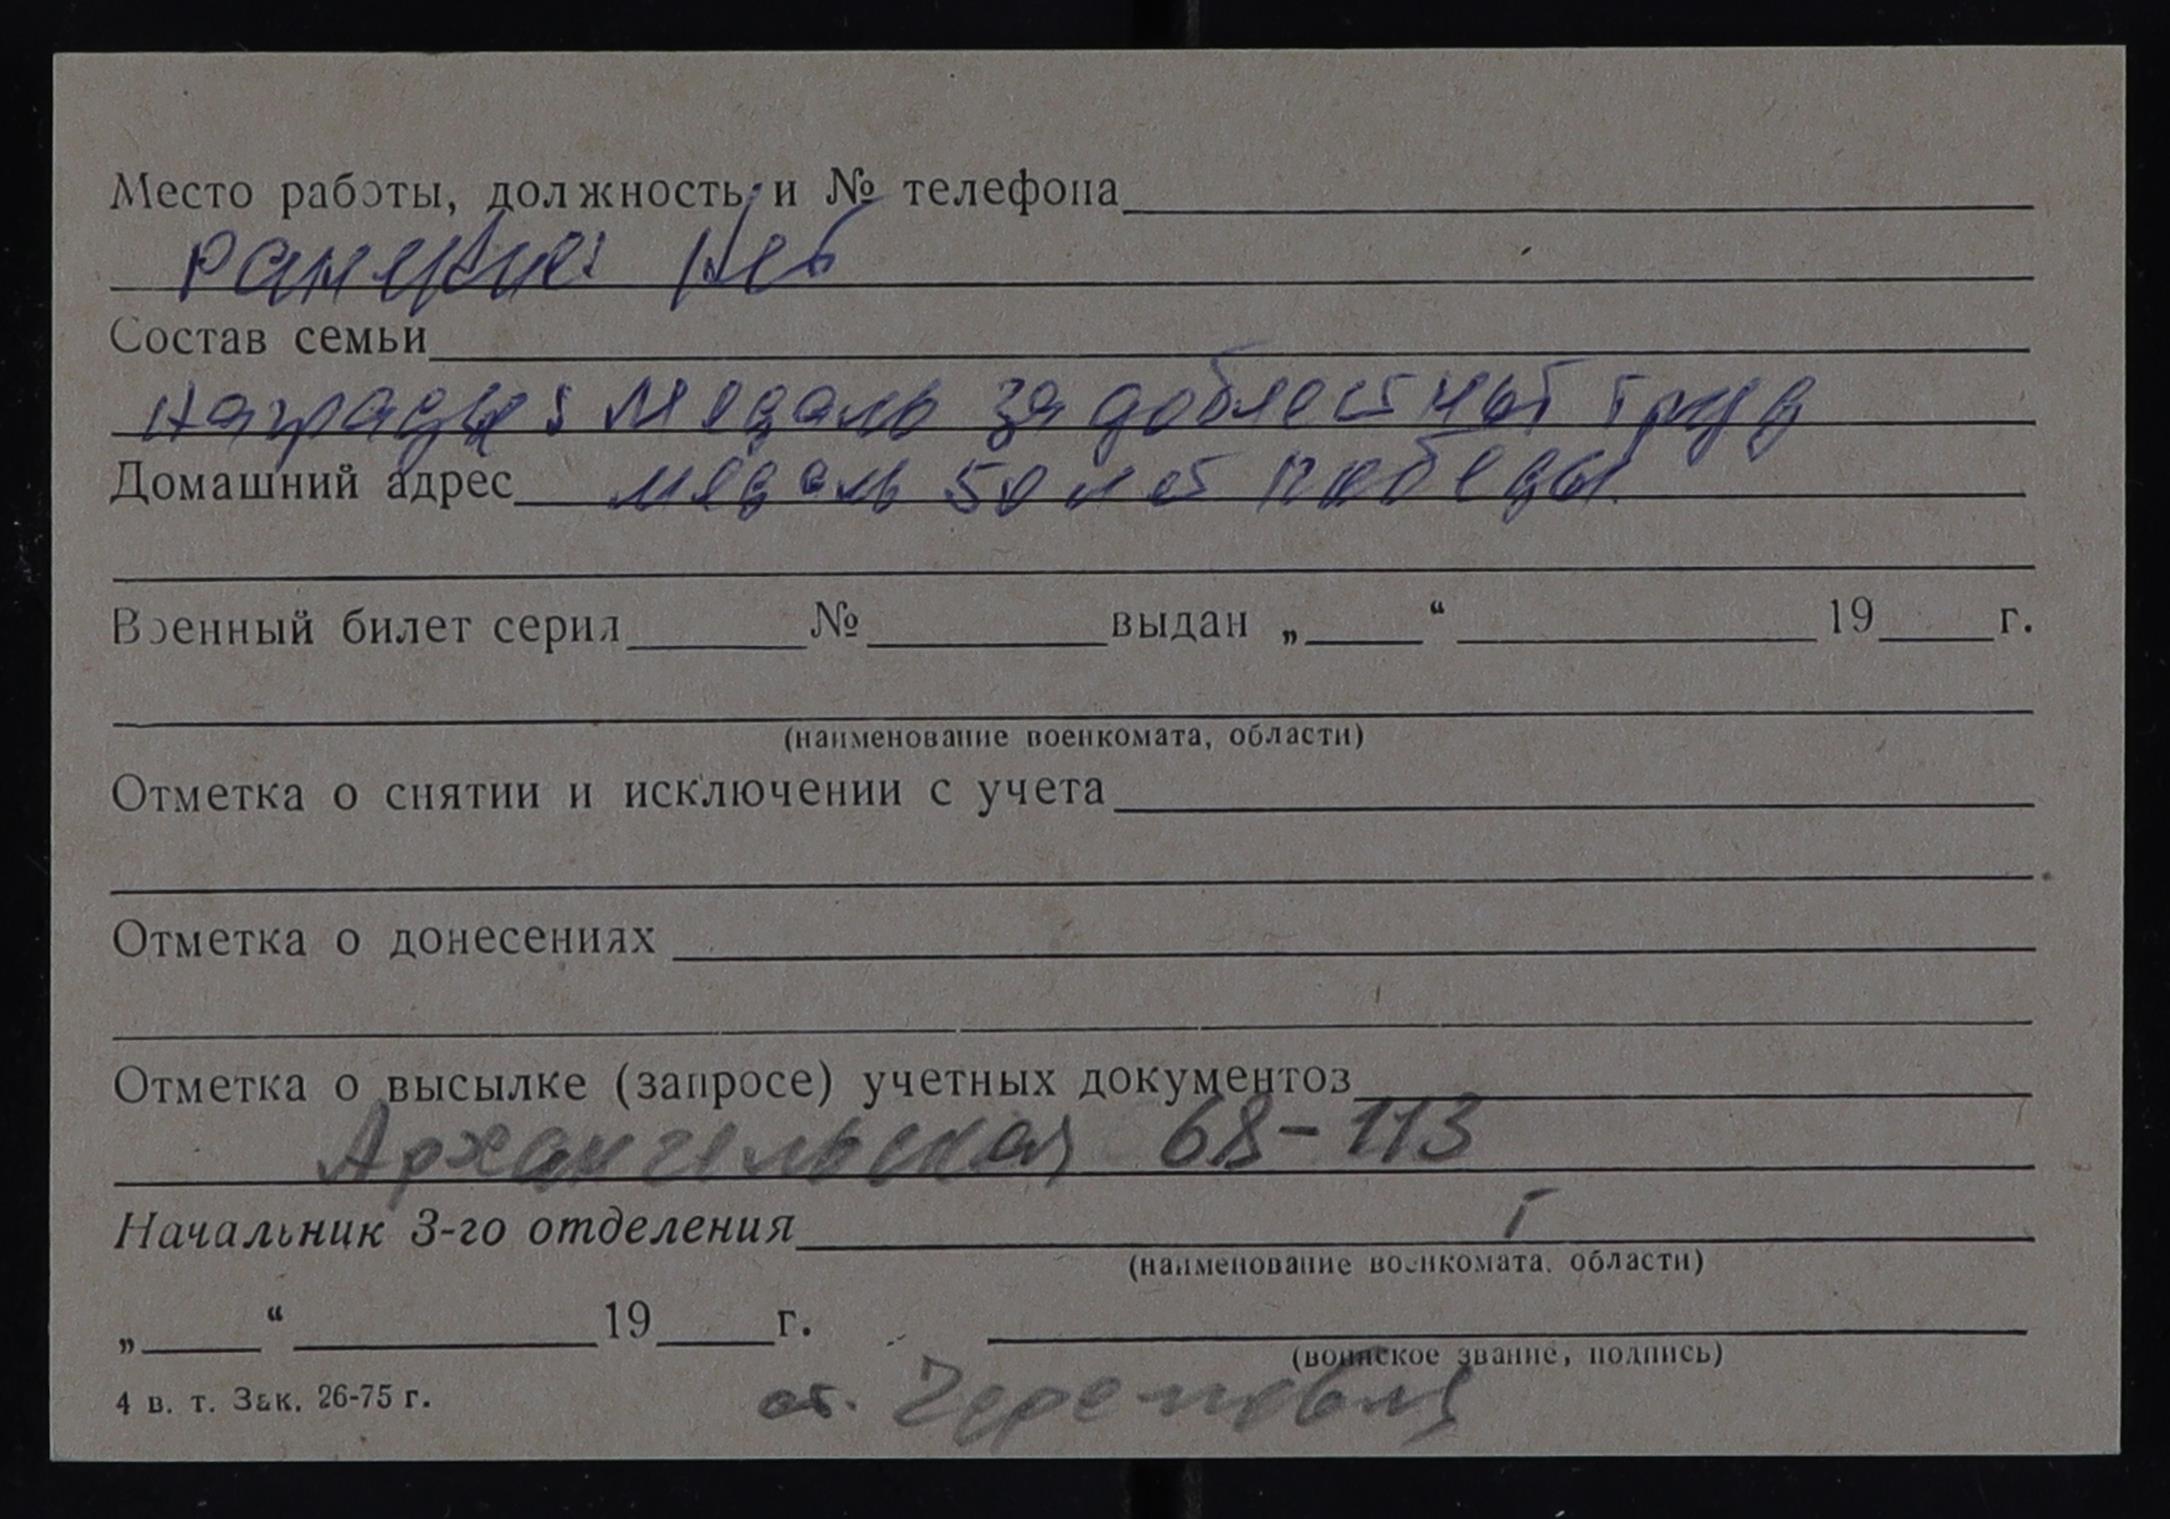 Место работы, должность и № телефона
ранения: Нет
Состав семьи
награды: медаль за доблестный труд
Домашний адрес медаль 50 лет победы.
Военный билет серия № выдан „ “ 19 г.
(наименование военкомата, области)
Отметка о снятии и исключении с учета
Отметка о донесениях
Отметка о высылке (запросе) учетных документов
Архангельская 68-113
Начальник 3-го отделения
(наименование военкомата, области)
„ “ 19 г.
(воинское звание, подпись)
4 в. т. Зак. 26-75 г.
Череповец